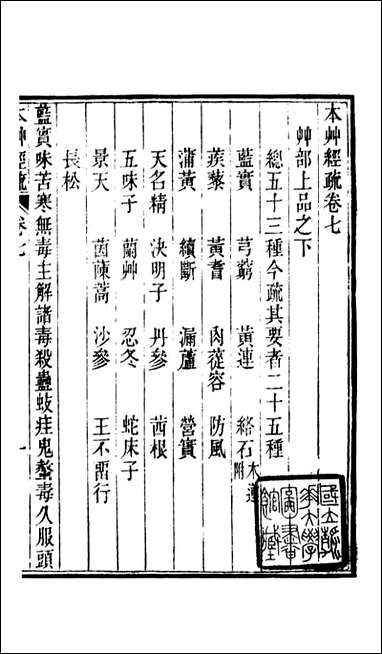 本艸經疏卷七
艸部上品之下
總五十三種今疏其要者二十五種
藍實 芎藭 黃連 絡石木蓮附
蒺藜 黃耆 肉蓯容 防風
蒲黃 續斷 漏蘆 營實
天名精 決明子 丹參 茜根
五味子 蘭艸 忍冬 蛇床子
景天 茵蔯蒿 沙參 王不畱行
長松
藍實味苦寒無毒主解諸毒殺蠱蚑疰鬼螫毒久服頭
本艸經疏 卷七 一